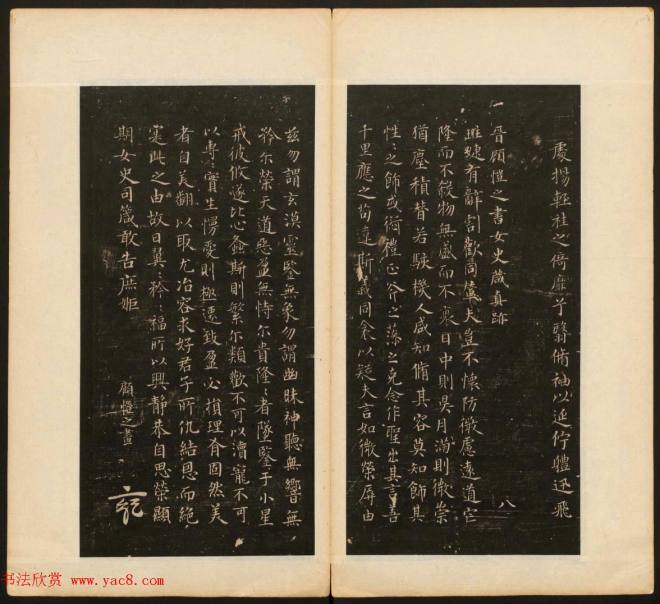 處揚輕袿之倚靡兮翳脩袖以延佇體迅飛
晉顧愷之書女史箴真跡
班婕有辭割歡同輦夫豈不懷防微慮遠道罔
隆而不殺物無盛而不衰日中則昃月滿則微崇
猶塵積替若駭機人咸知脩其容莫知飾其
性性之飾或愆禮正斧之藻之克念作聖出其言善
千里應之苟違斯義同衾以疑夫言如微榮辱由
八
茲勿謂玄漠靈鑒無象勿謂幽昧神聽無響無
矜尔榮天道惡盈無恃尔貴隆隆者墜鑒于小星
戒彼攸遂比心螽斯則繁尔類歡不可以瀆寵不可
以專專實生慢愛則極遷致盈必損理有固然美
者自美翩以取尤冶容求好君子所仇結恩而絕
寔此之由故曰翼翼矜矜福所以興靜恭自思榮顯
期女史司箴敢告庶姬
顧愷之畫
书法欣赏 www.yac8.com